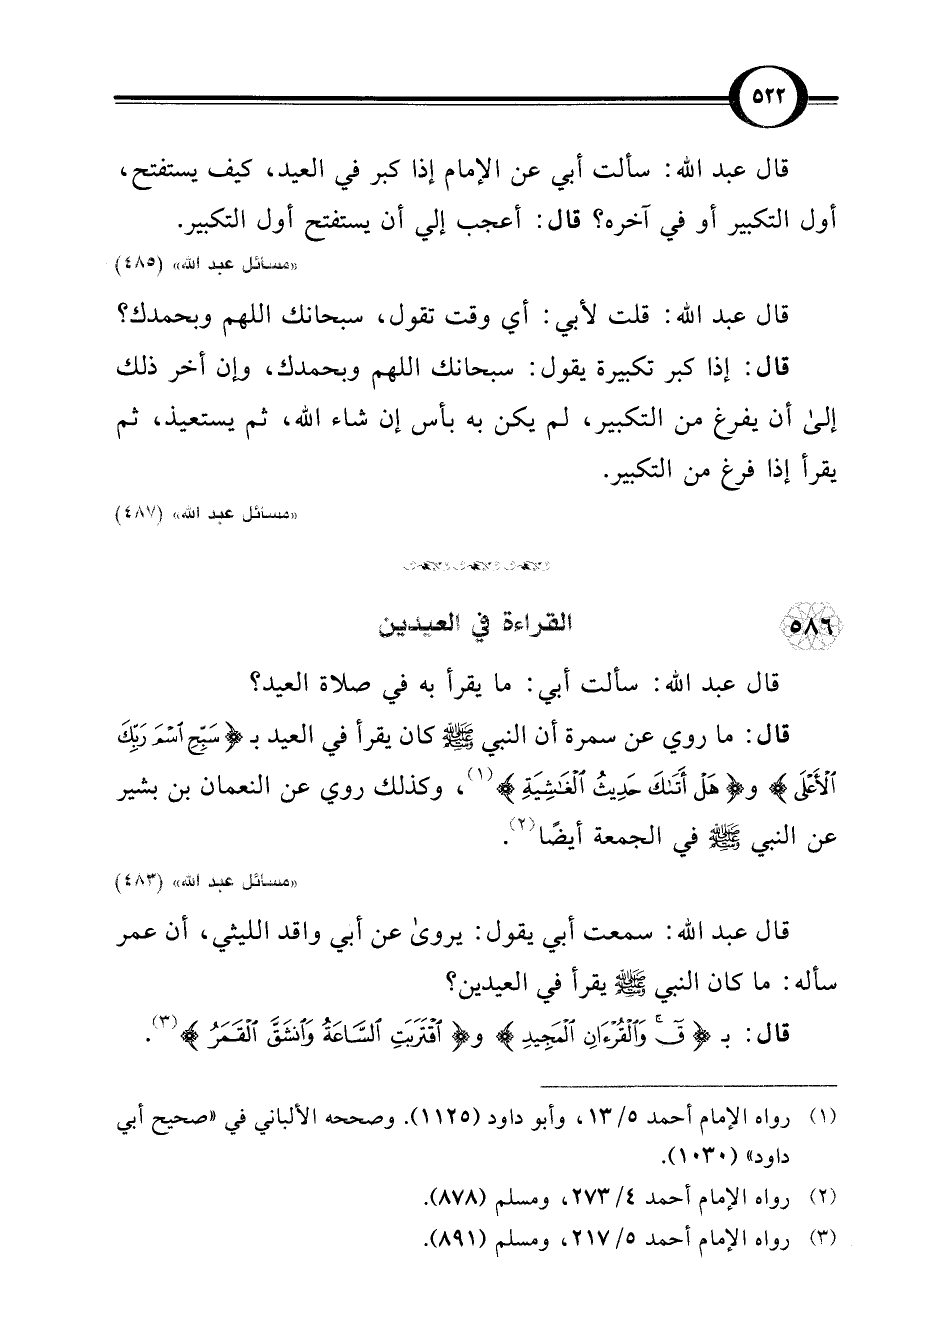 ٥٢٢
قال عبد الله: سألت أبي عن الإمام إذا كبر في العيد، كيف يستفتح،
أول التكبير أو في آخره؟ قال: أعجب إلي أن يستفتح أول التكبير.
«مسائل عبد الله» (٤٨٥)
قال عبد الله: قلت لأبي: أي وقت تقول، سبحانك اللهم وبحمدك؟
قال: إذا كبر تكبيرة يقول: سبحانك اللهم وبحمدك، وإن أخر ذلك
إلىٰ أن يفرغ من التكبير، لم يكن به بأس إن شاء الله، ثم يستعيذ، ثم
يقرأ إذا فرغ من التكبير.
«مسائل عبد الله» (٤٨٧)
٥٨٦ القراءة في العيدين
قال عبد الله: سألت أبي: ما يقرأ به في صلاة العيد؟
قال: ما روي عن سمرة أن النبي ﷺ كان يقرأ في العيد بـ ﴿سَبِّحِ ٱسْمَ رَبِّكَ
ٱلْأَعْلَى﴾ و﴿هَلْ أَتَىٰكَ حَدِيثُ ٱلْغَٰشِيَةِ﴾(١)، وكذلك روي عن النعمان بن بشير
عن النبي ﷺ في الجمعة أيضًا(٢).
«مسائل عبد الله» (٤٨٣)
قال عبد الله: سمعت أبي يقول: يروىٰ عن أبي واقد الليثي، أن عمر
سأله: ما كان النبي ﷺ يقرأ في العيدين؟
قال: بـ ﴿قٓ ۚ وَٱلْقُرْءَانِ ٱلْمَجِيدِ﴾ و﴿ٱقْتَرَبَتِ ٱلسَّاعَةُ وَٱنشَقَّ ٱلْقَمَرُ﴾(٣).
(١) رواه الإمام أحمد ٥/ ١٣، وأبو داود (١١٢٥). وصححه الألباني في «صحيح أبي
داود» (١٠٣٠).
(٢) رواه الإمام أحمد ٤/ ٢٧٣، ومسلم (٨٧٨).
(٣) رواه الإمام أحمد ٥/ ٢١٧، ومسلم (٨٩١).